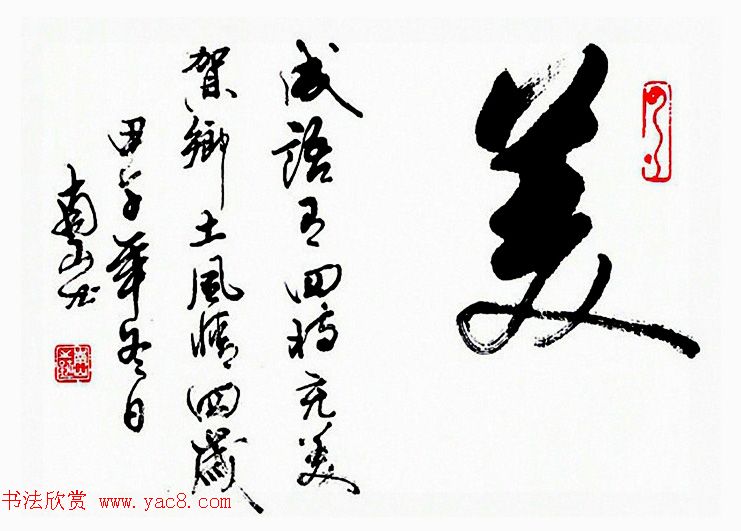 美
成語有四美
賀鄉土風情四歲
甲午年冬日
南山
书法欣赏 www.yac8.com